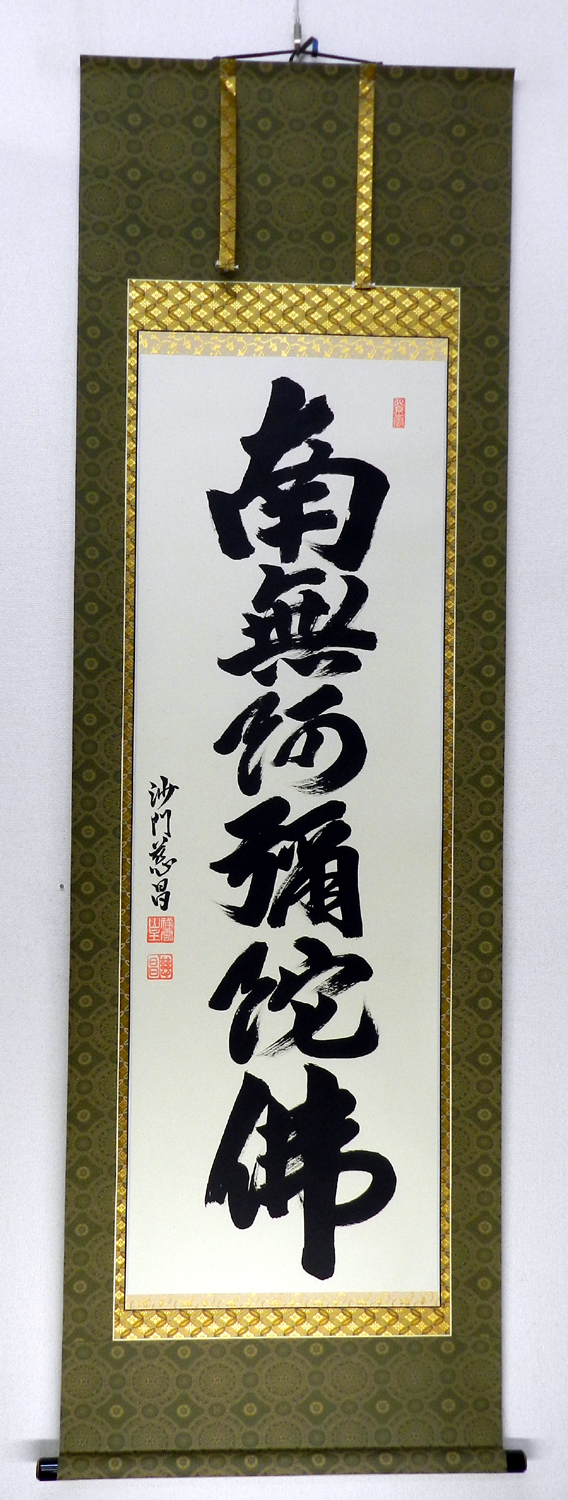 南無阿彌陀佛
沙門慈昌